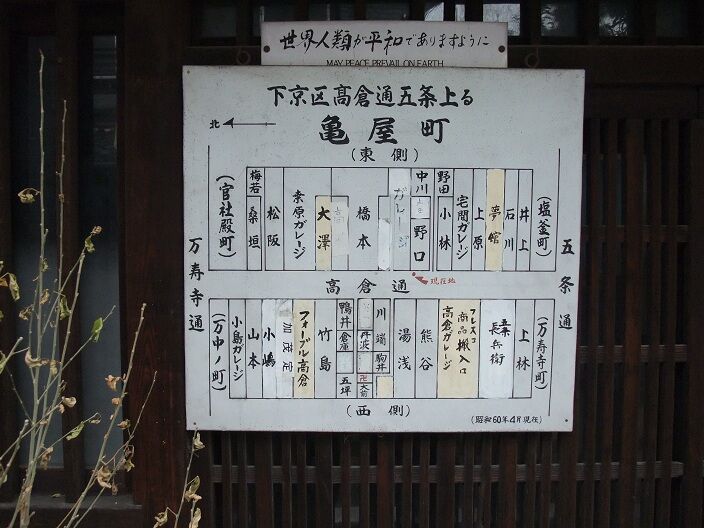 世界人類が平和でありますように
MAY PEACE PREVAIL ON EARTH
下京区高倉通五条上る
北
亀屋町
(東側)
(官社殿町)
梅若
桑垣
松阪
桒原ガレージ
大澤
橋本
ガレージ
中川
野口
野田
小林
宅間ガレージ
上原
夢館
石川
井上
(塩釜町)
万寿寺通
高倉通
現在地
五条通
(万中ノ町)
小島ガレージ
山本
小嶋
加茂定
フォーブル高倉
竹島
鴨井
倉庫
五坪
丹波
大前
川端
駒井
湯浅
熊谷
高倉ガレージ
フレスコ
商品搬入口
長兵衛
上林
(万寿寺町)
(西側)
(昭和60年4月現在)